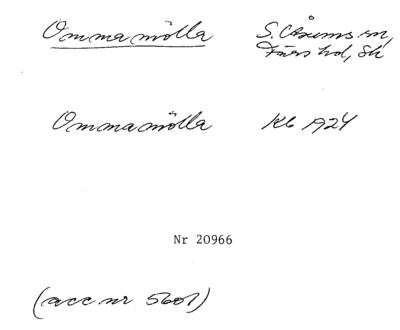 Ommamölla S. Åsums sn,
Färs hd, Sk
Ommamölla Kb 1924
Nr 20966
(acc nr 5601)